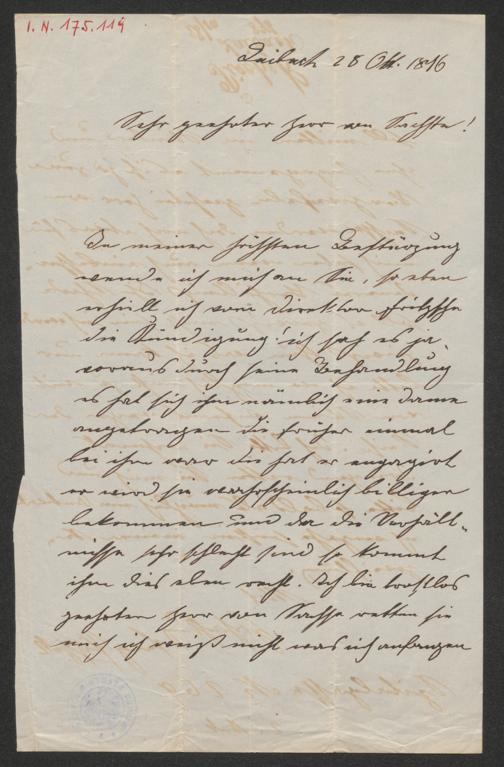 I. N. 175.119
Laibach 28 Okt. 1876
Sehr geehrter Herr von Sachse!
In meiner höchsten Bestürzung
wende ich mich an Sie, so eben
erhielt ich vom Direktor Fritzsche
die Kündigung! ich sah es ja
voraus durch seine Behandlung
es hat sich ihm nämlich eine Dame
angetragen die früher einmal
bei ihm war die hat er engagirt
er wird sie wahrscheinlich billiger
bekommen und da die Verhält-
nisse sehr schlecht sind so kommt
ihm dies eben recht. Ich bin trostlos
geehrter Herr von Sachse retten sie
mich ich weiß nicht was ich anfangen